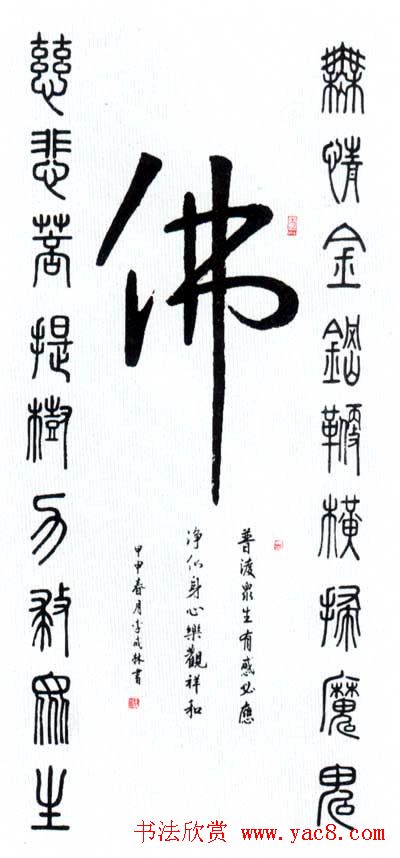 無情金鋼鞭橫掃魔鬼
佛
普渡眾生有感必應
淨化身心樂觀祥和
甲申春月李成林書
慈悲菩提樹力救眾生
书法欣赏 www.yac8.com